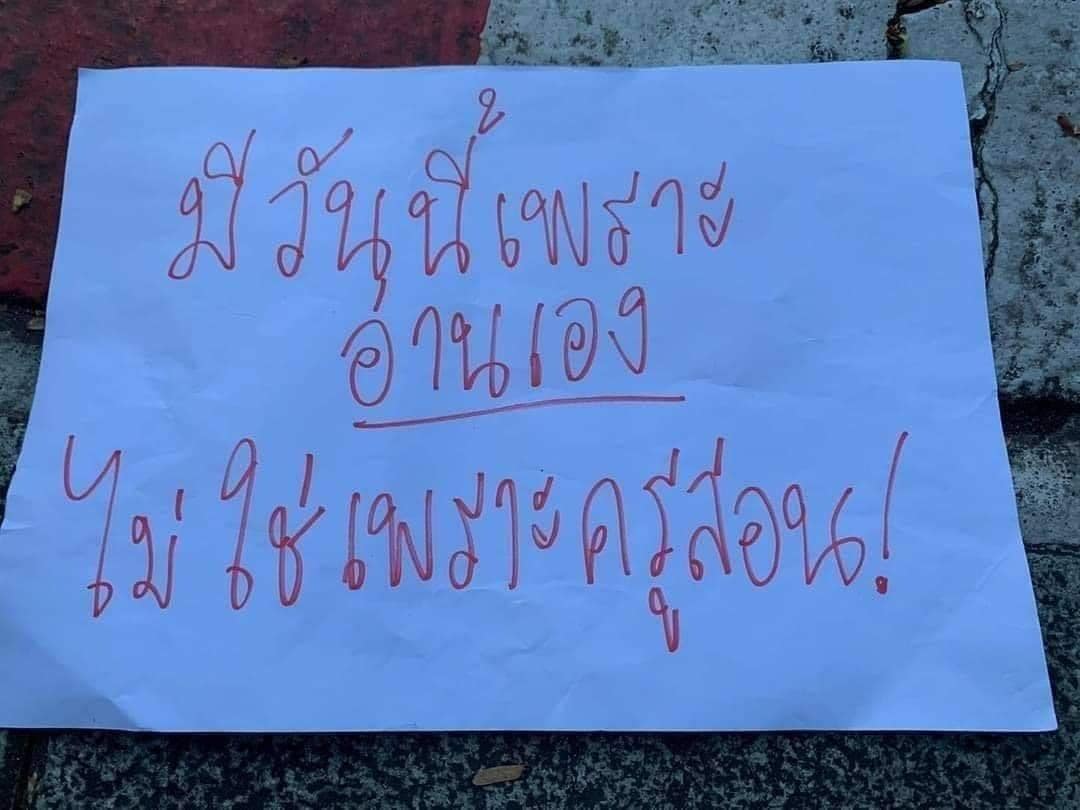 มีวันนี้เพราะ
อ่านเอง
ไม่ใช่เพราะครูสอน!